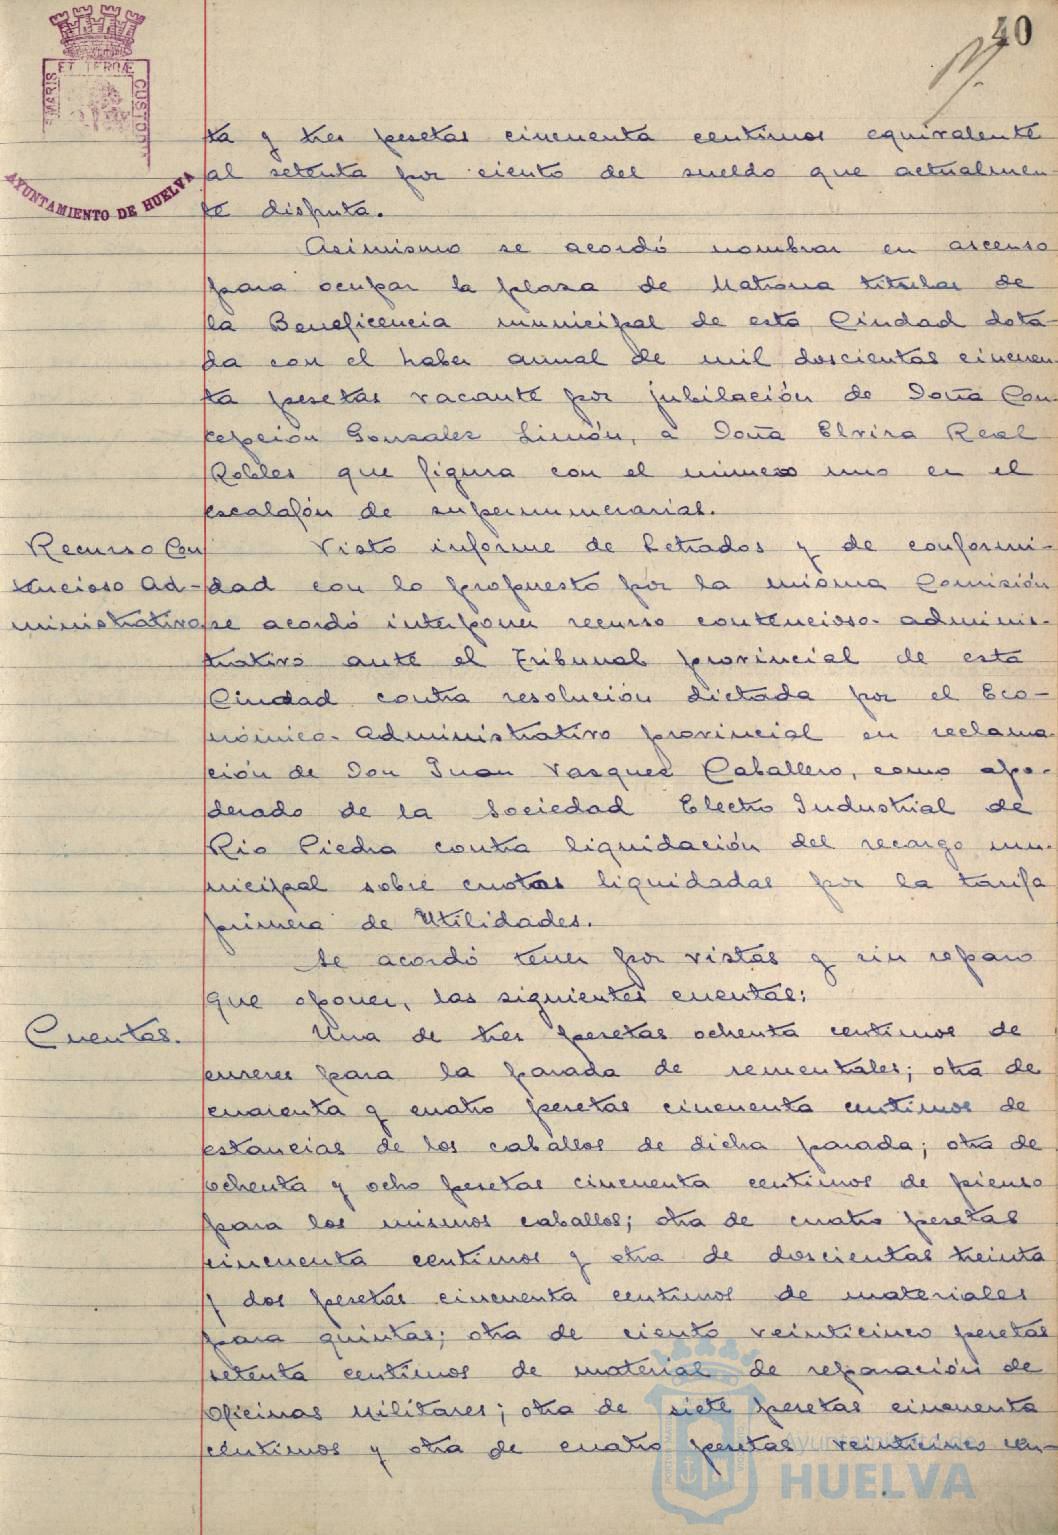 40
MARIS
ET TERRÆ
CUSTOD
AYUNTAMIENTO DE HUELVA
ta y tres pesetas cincuenta centimos equivalente
al setenta por ciento del sueldo que actualmen-
te disfruta.
Asimismo se acordó nombrar en ascenso
para ocupar la plaza de Matrona titular de
la Beneficencia municipal de esta Ciudad dota-
da con el haber anual de mil doscientas cincuen-
ta pesetas vacante por jubilación de Doña Con-
cepción Gonzalez Limón, a Doña Elvira Real
Robles que figura con el número uno en el
escalafón de supernumerarias.
Recurso Con
tencioso ad-
ministrativo
Visto informe de Letrados y de conformi-
dad con lo propuesto por la misma Comisión
se acordó interponer recurso contencioso-adminis-
trativo ante el Tribunal provincial de esta
Ciudad contra resolución dictada por el Eco-
nómico-Administrativo provincial en reclama-
ción de Don Juan Vazquez Caballero, como apo-
derado de la Sociedad Electro Industrial de
Rio Piedra contra liquidación del recargo mu-
nicipal sobre cuotas liquidadas por la tarifa
primera de Utilidades.
Se acordó tener por vistas y sin reparo
que oponer, las siguientes cuentas:
Cuentas.
Una de tres pesetas ochenta centimos de
enseres para la parada de sementales; otra de
cuarenta y cuatro pesetas cincuenta centimos de
estancias de los caballos de dicha parada; otra de
ochenta y ocho pesetas cincuenta centimos de pienso
para los mismos caballos; otra de cuatro pesetas
cincuenta centimos y otra de doscientas treinta
y dos pesetas cincuenta centimos de materiales
para quintas; otra de ciento veinticinco pesetas
setenta centimos de material de reparación de
Oficinas Militares; otra de siete pesetas cincuenta
centimos y otra de cuatro pesetas veinticinco cen-
Ayuntamiento de
HUELVA